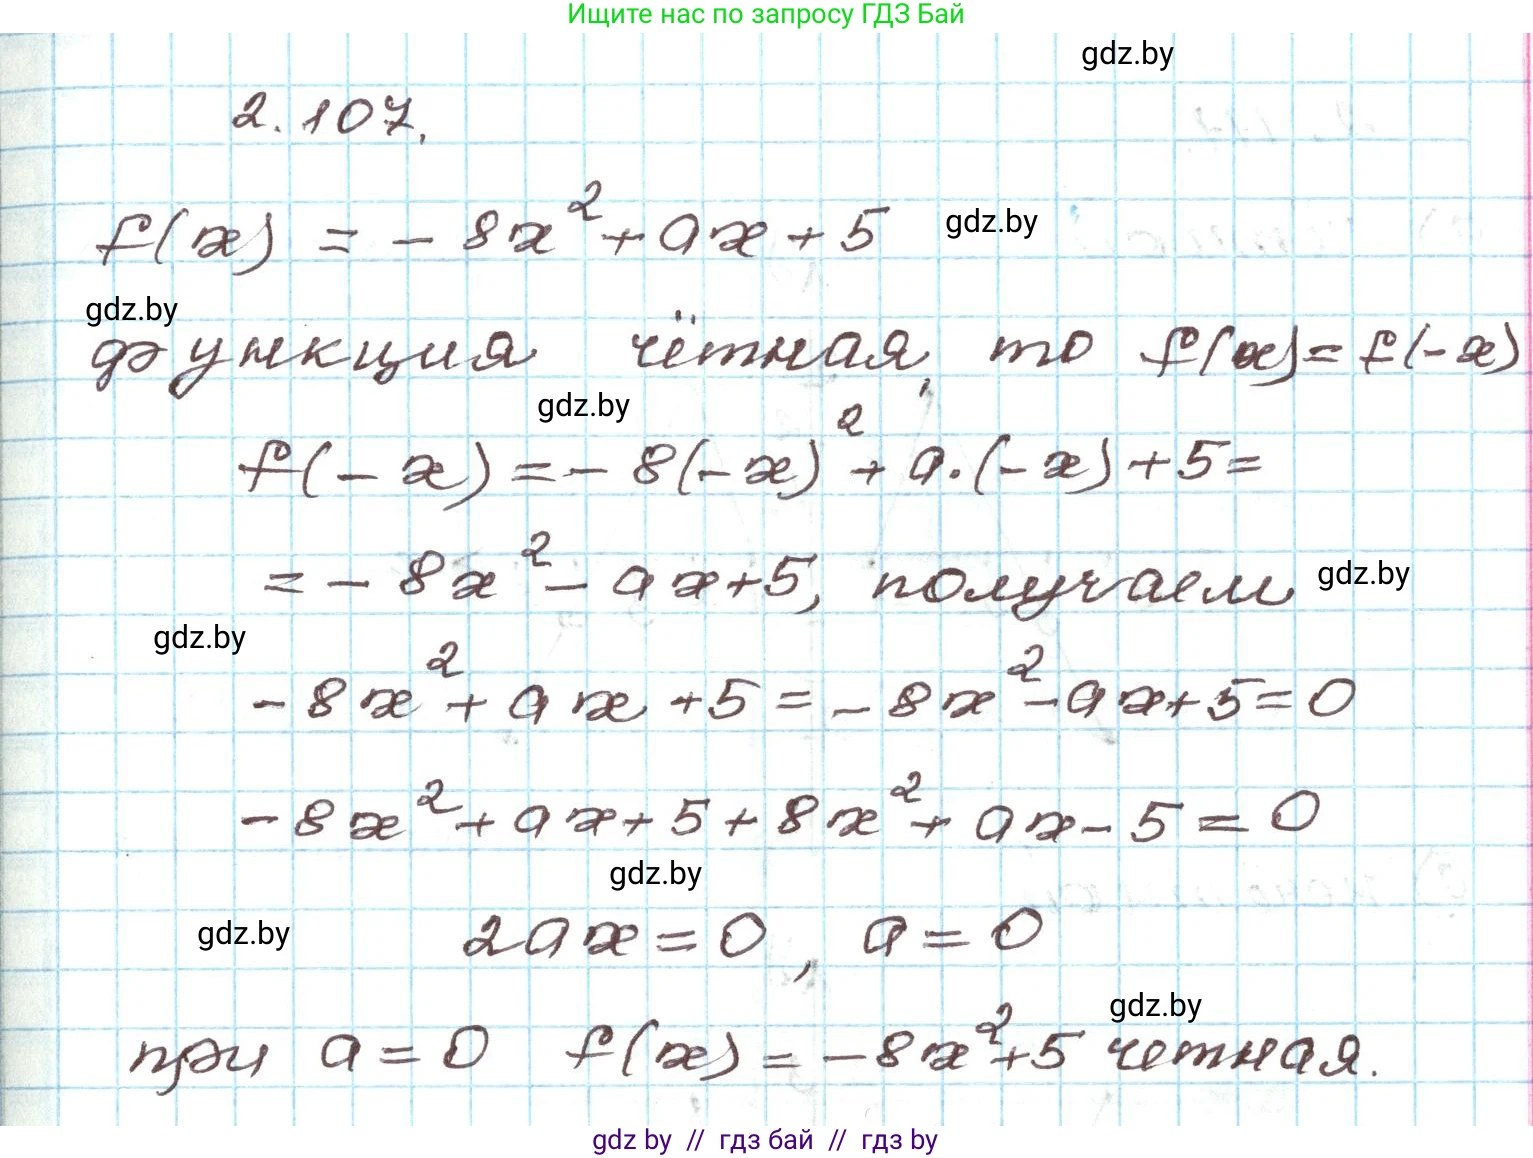 Ищите нас по запросу ГДЗ Бай
gdz.by
2.107.
f(x) = -8x² + ax + 5 gdz.by
gdz.by
функция чётная, то f(x) = f(-x)
gdz.by
f(-x) = -8(-x)² + a·(-x) + 5 =
= -8x² - ax + 5, получаем gdz.by
gdz.by
-8x² + ax + 5 = -8x² - ax + 5 = 0
-8x² + ax + 5 + 8x² + ax - 5 = 0
gdz.by
gdz.by 2ax = 0, a = 0
gdz.by
при a = 0 f(x) = -8x² + 5 четная.
gdz by // гдз бай // гдз by